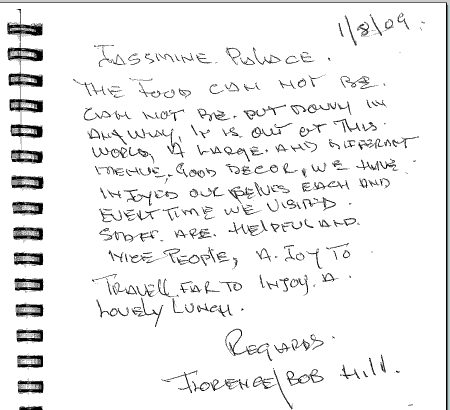 1/8/09.
JASSMINE PALACE.
THE FOOD CAN NOT BE.
CAN NOT BE. PUT DOWN IN
ANYWAY, IT IS OUT OF THIS.
WORLD, A LARGE. AND DIFFERANT
MENUE, GOOD DECOR, WE HAVE.
INJOYED OUR SELVES EACH AND
EVERY TIME WE VISITED.
STAFF. ARE. HELPFUL AND.
NICE PEOPLE, A. JOY TO
TRAVELL FAR TO INJOY. A.
LOVELY LUNCH.
REGARDS.
FLORENCE/BOB HILL.